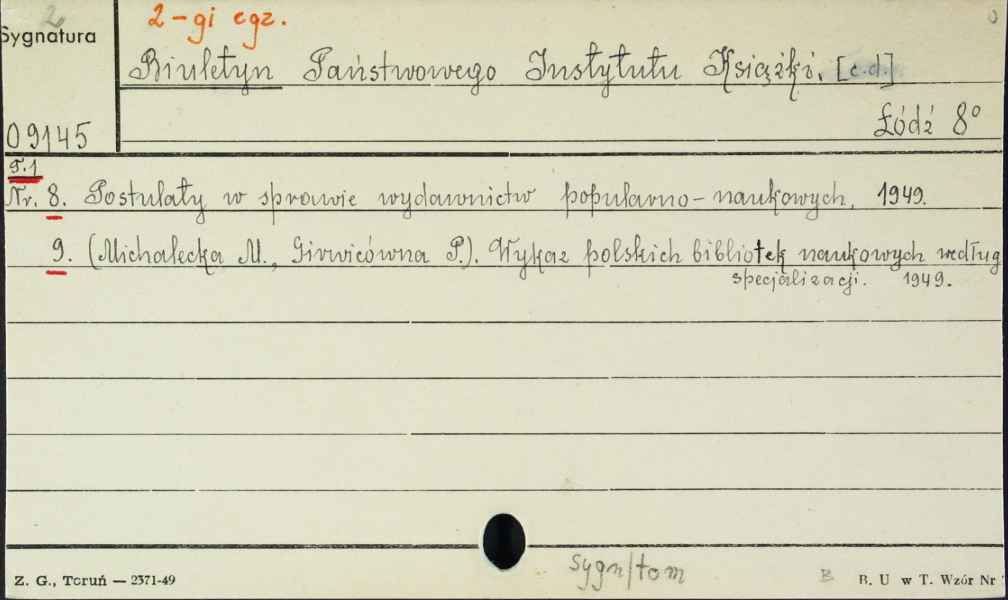 2
2-gi egz.
0
Sygnatura
Biuletyn Państwowego Instytutu Książki. [c.d.]
09145
Łódź 8°
T.1
Nr. 8. Postulaty w sprawie wydawnictw popularno-naukowych. 1949.
9. (Michałecka M., Girwicówna P.). Wykaz polskich bibliotek naukowych według
specjalizacji. 1949.
sygn/tom
Z. G., Toruń — 2371-49
B
B. U w T. Wzór Nr